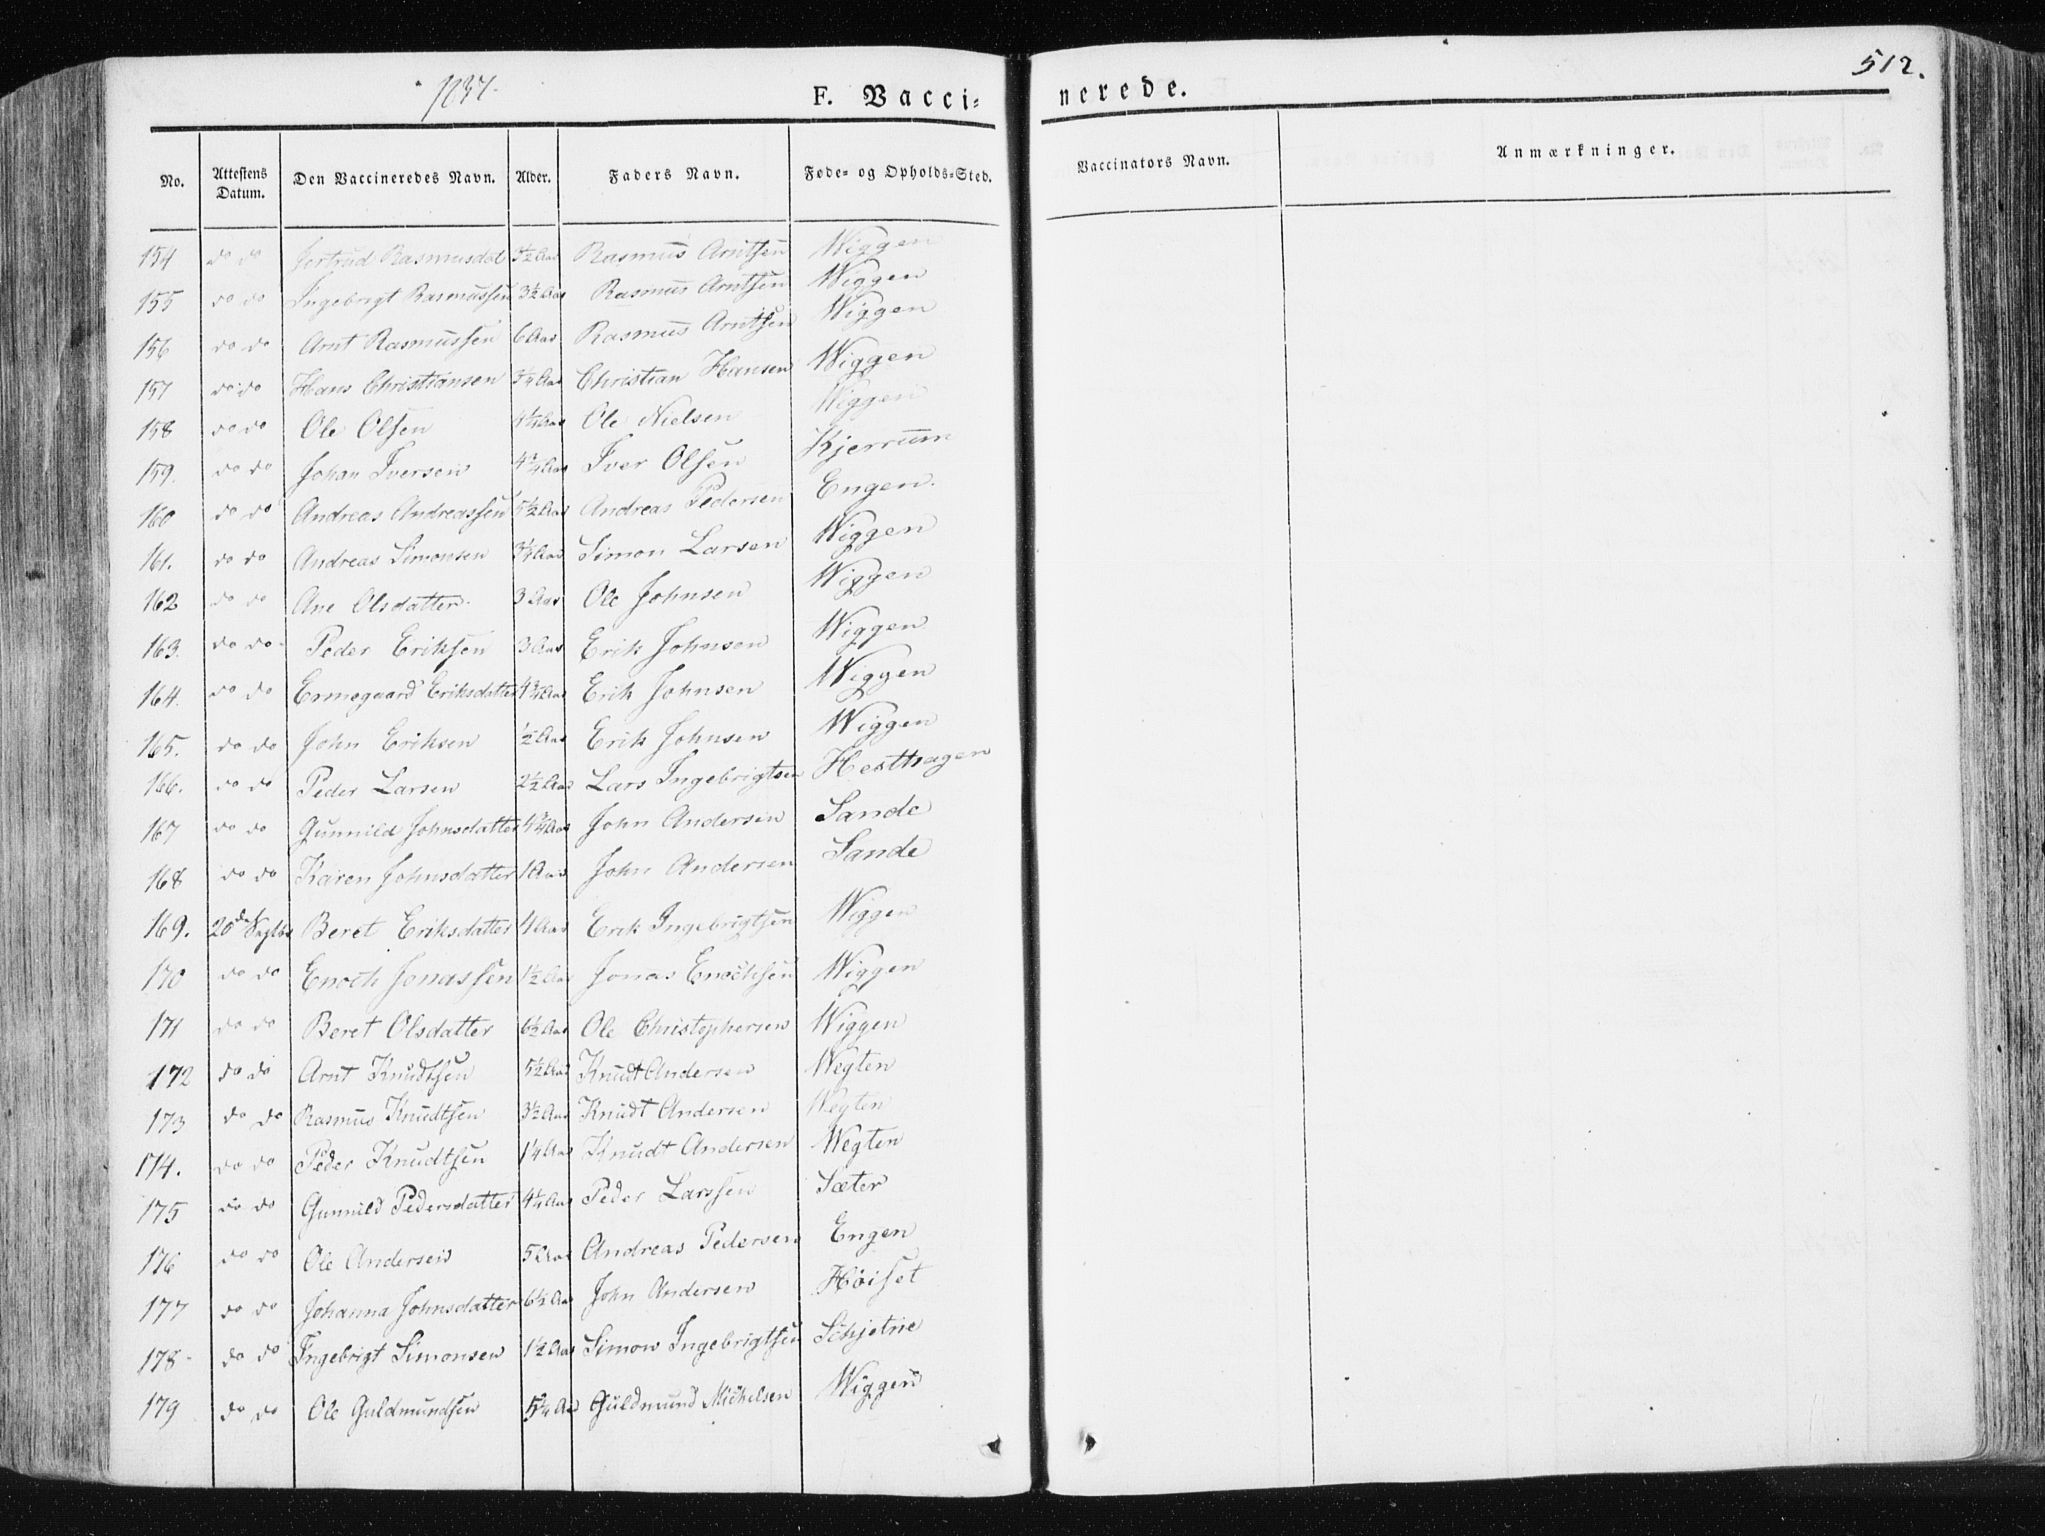 1837.
F. Vacci= nerede.
512.
No. Attestens Datum. Den Vaccineredes Navn. Alder. Faders Navn. Føde- og Opholds-Sted. Vaccinators Navn. Anmærkninger.
154 do do Rasmusdat 3½ Aar Rasmus Arntsen Wiggen
155 do do Ingebrigt Rasmussen 3½ Aar Rasmus Arntsen Wiggen
156 do do Arnt Rasmussen 6 Aar Rasmus Arntsen Wiggen
157 do do Hans Christiansen Aar Christian Hansen Wiggen
158 do do Ole Olsen Aar Ole Nielsen Wiggen
159. do do Johan Iversen Aar Iver Olsen Kjerrum
160 do do Andreas Andreassen 5½ Aar Andreas Pedersen Engen.
161. do do Andreas Simonsen Aar Simon Larsen Wiggen
162 do do Ane Olsdatter. 3 Aar Ole Johnsen Wiggen
163. do do Peder Eriksen 3 Aar Erik Johnsen Wiggen
164. do do Ermegaard Eriksdatter 4¾ Aar Erik Johnsen Wiggen
165. do do John Eriksen ½ Aar Erik Johnsen Wiggen
166. do do Peder Larsen 2½ Aar Lars Ingebrigtsen Hesthagen
167 do do Gunnild Johnsdatter 4¾ Aar John Andersen Sande
168 do do Karen Johnsdatter 1 Aar John Andersen Sande
169. 20de Beret Eriksdatter 4 Aar Erik Ingebrigtsen Wiggen
170 do do Enoch Jonassen 1½ Aar Jonas Enochsen Wiggen
171 do do Beret Olsdatter 6½ Aar Ole Christophersen Wiggen
172 do do Arnt Knudtsen 5½ Aar Knudt Andersen Wegten
173 do do Rasmus Knudtsen 3½ Aar Knudt Andersen Wegten
174. do do Peder Knudtsen 1¼ Aar Knudt Andersen Wegten
175 do do Gunnild Pedersdatter 4¼ Aar Peder Larssen Sæter
176 do do Ole Andersen 5 Aar Andreas Pedersen Engen
177 do do Johanna Johnsdatter 6½ Aar John Andersen Höiset
178- do do Ingebrigt Simonsen 1½ Aar Simon Ingebrigtsen Schjetne
179 do do Ole Guldmundsen Aar Guldmund Michelsen Wiggen